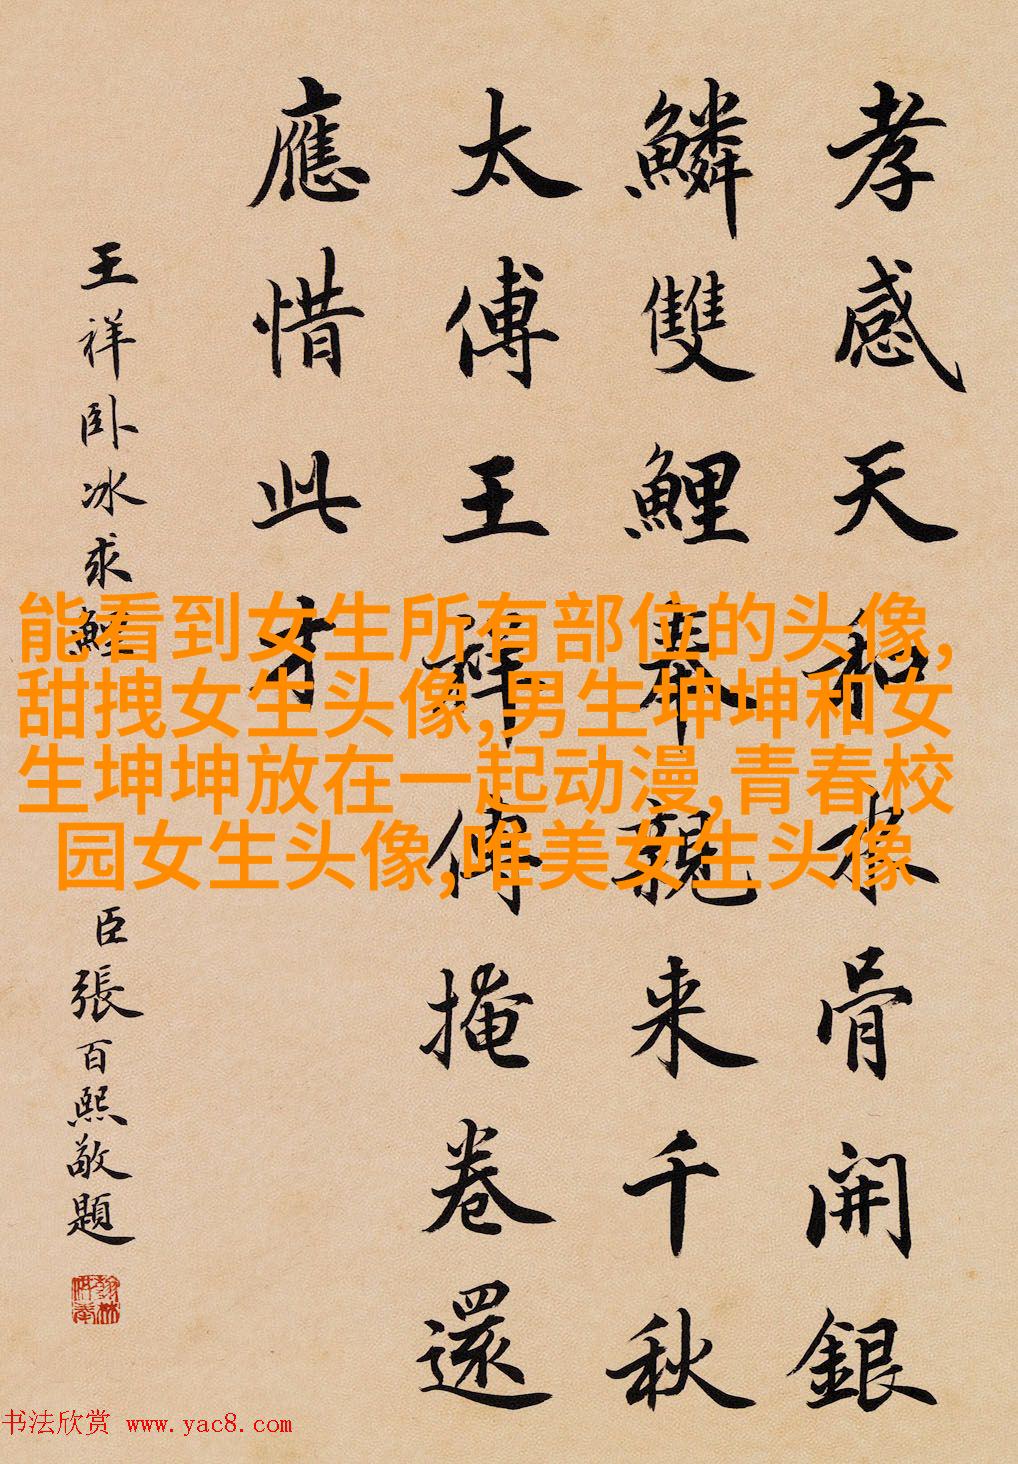 孝感天和氷骨開銀
鱗雙鯉奉親来千秋
太傅王祥傳掩卷還
應惜此才
王祥卧冰求鯉
臣張百熙敬題
能看到女生所有部位的头像,
甜拽女生头像,男生坤坤和女
生坤坤放在一起动漫,青春校
园女生头像,唯美女生头像
书法欣赏 www.yac8.com